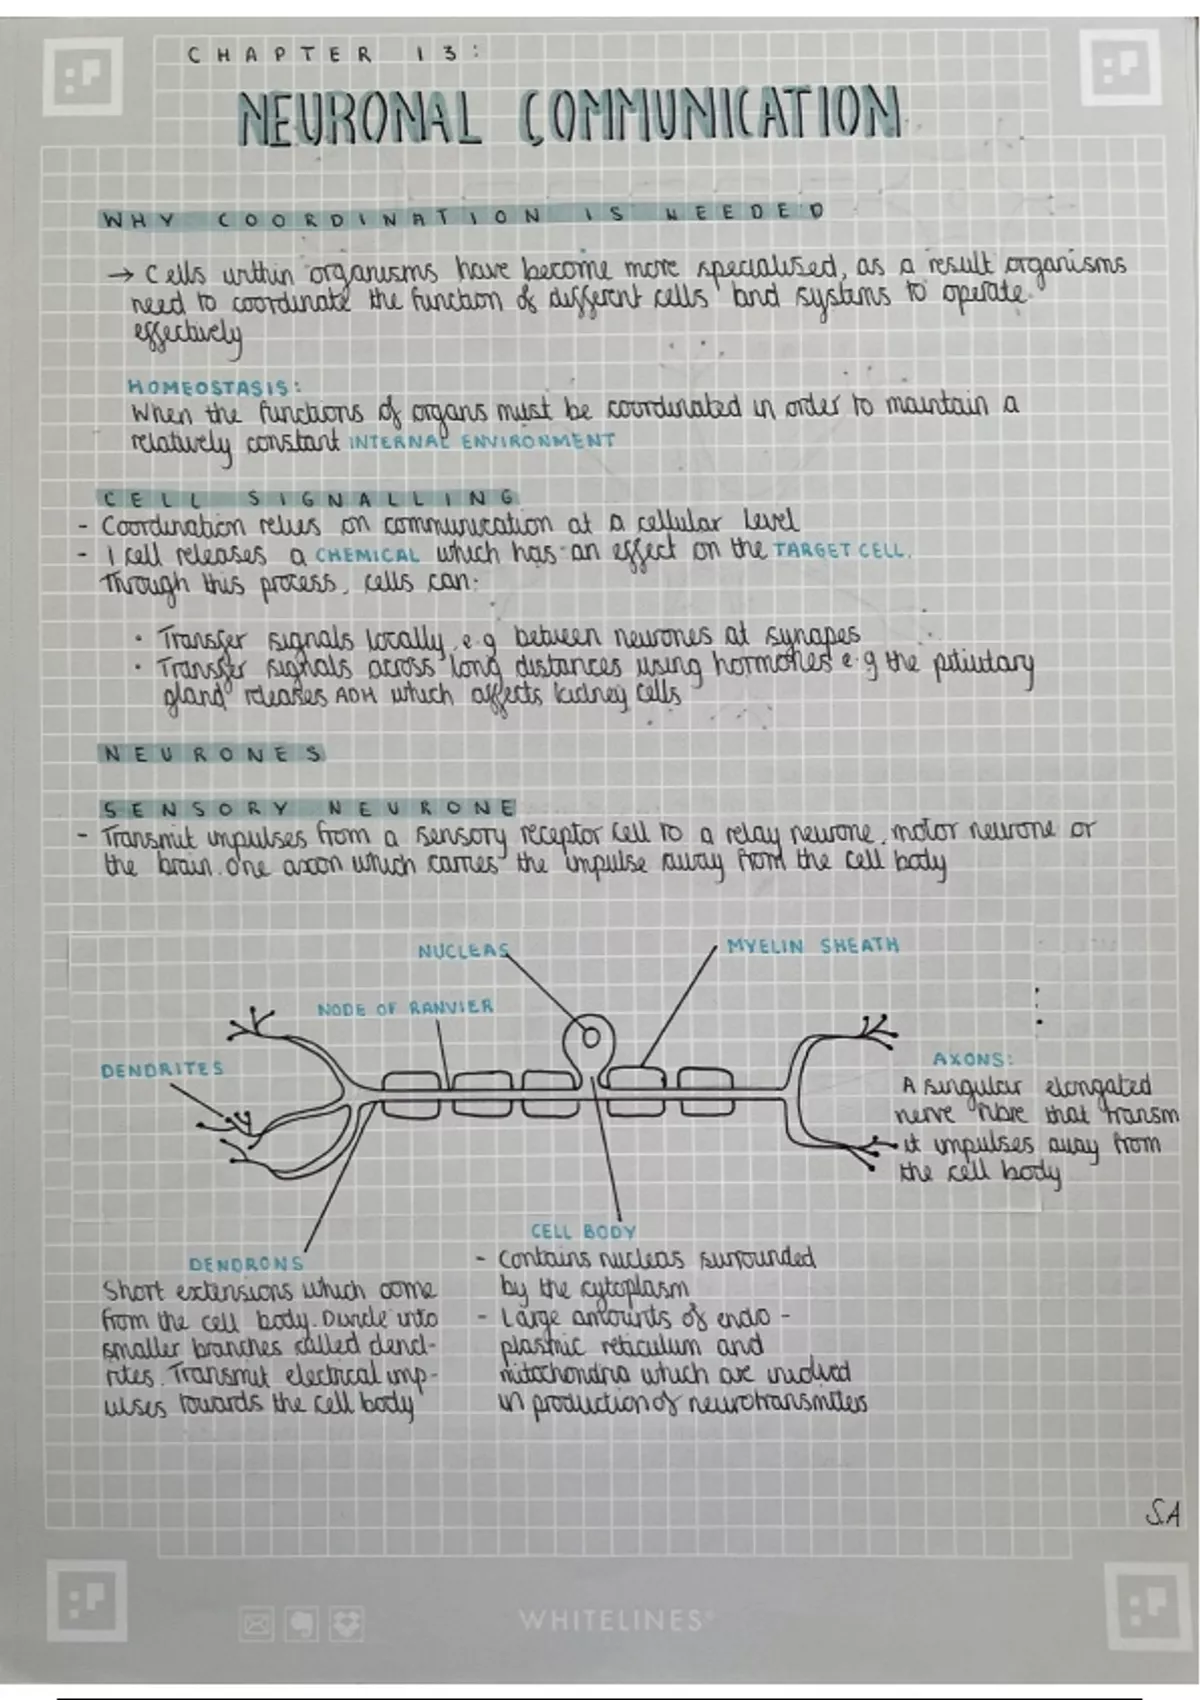 CHAPTER 13:
NEURONAL COMMUNICATION
WHY COORDINATION IS NEEDED
→ Cells within organisms have become more specialised, as a result organisms
need to coordinate the function of different cells and systems to operate
effectively
HOMEOSTASIS:
When the functions of organs must be coordinated in order to maintain a
relatively constant INTERNAL ENVIRONMENT
CELL SIGNALLING
- Coordination relies on communication at a cellular level
- 1 cell releases a CHEMICAL which has an effect on the TARGET CELL.
Through this process, cells can:
• Transfer signals locally, e.g between neurones at synapes
• Transfer signals across long distances using hormones e.g the pitiutary
gland releases ADH which affects kidney cells
NEURONES
SENSORY NEURONE
- Transmit impulses from a sensory receptor cell to a relay neurone, motor neurone or
the brain. One axon which carries the impulse away from the cell body
NUCLEAS
MYELIN SHEATH
NODE OF RANVIER
DENDRITES
AXONS:
A singular elongated
nerve fibre that transm
it impulses away from
the cell body
CELL BODY
- Contains nucleas surrounded
by the cytoplasm
- Large amounts of endo-
plasmic reticulum and
mitochondria which are involved
in production of neurotransmitters
DENDRONS
Short extensions which come
from the cell body. Divide into
smaller branches called dend-
rites. Transmit electrical imp-
ulses towards the cell body
S.A
WHITELINES®